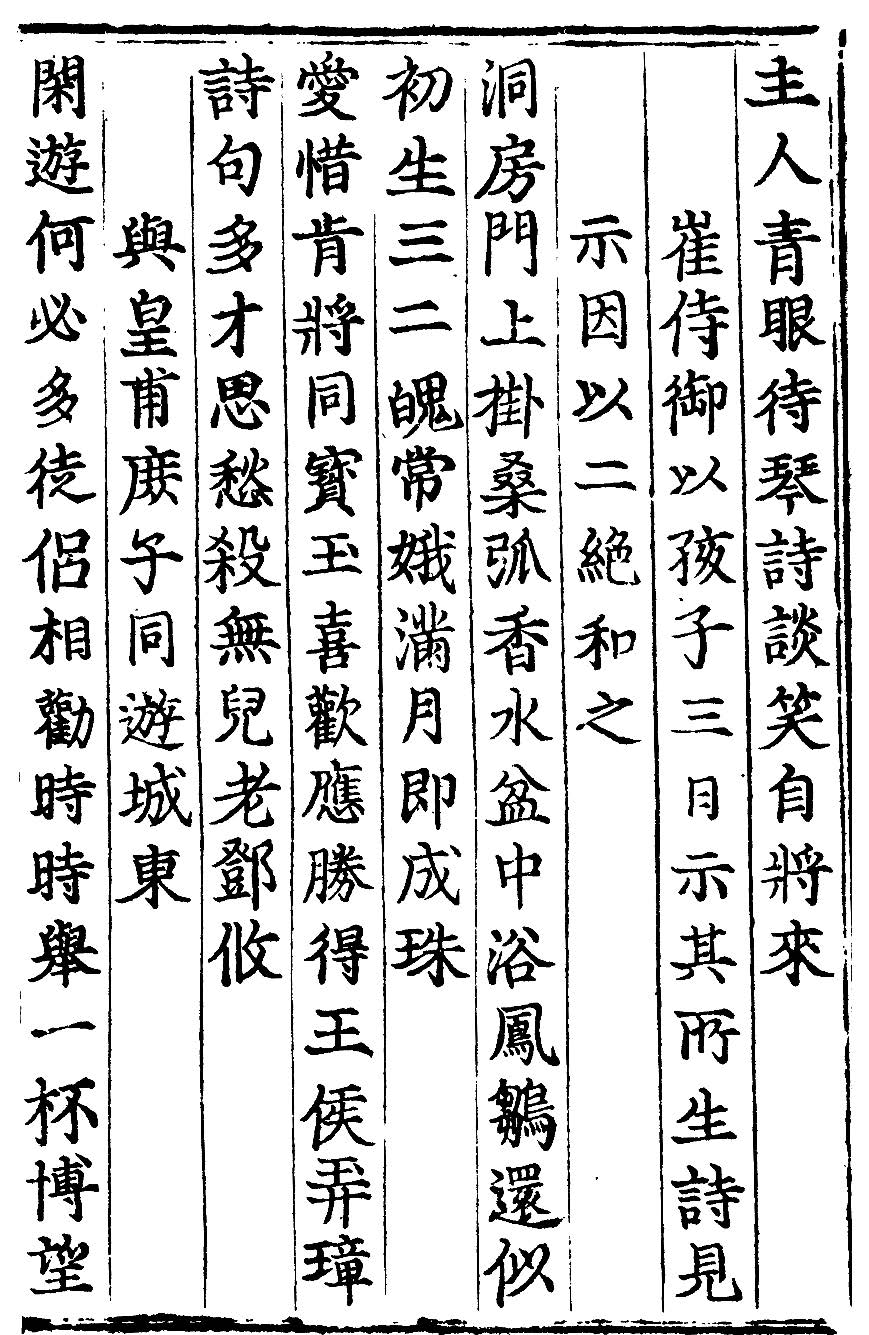 主人青眼待琴詩談笑自將來
崔侍御以孩子三日示其所生詩見
示因以二絶和之
洞房門上掛桑弧香水盆中浴鳳鶵還似
初生三二魄常娥滿月即成珠
愛惜肯將同寳玉喜歡應勝得王侯弄璋
詩句多才思愁殺無兒老鄧攸
與皇甫庶子同遊城東
閑遊何必多徒侣相勸時時舉一杯博望